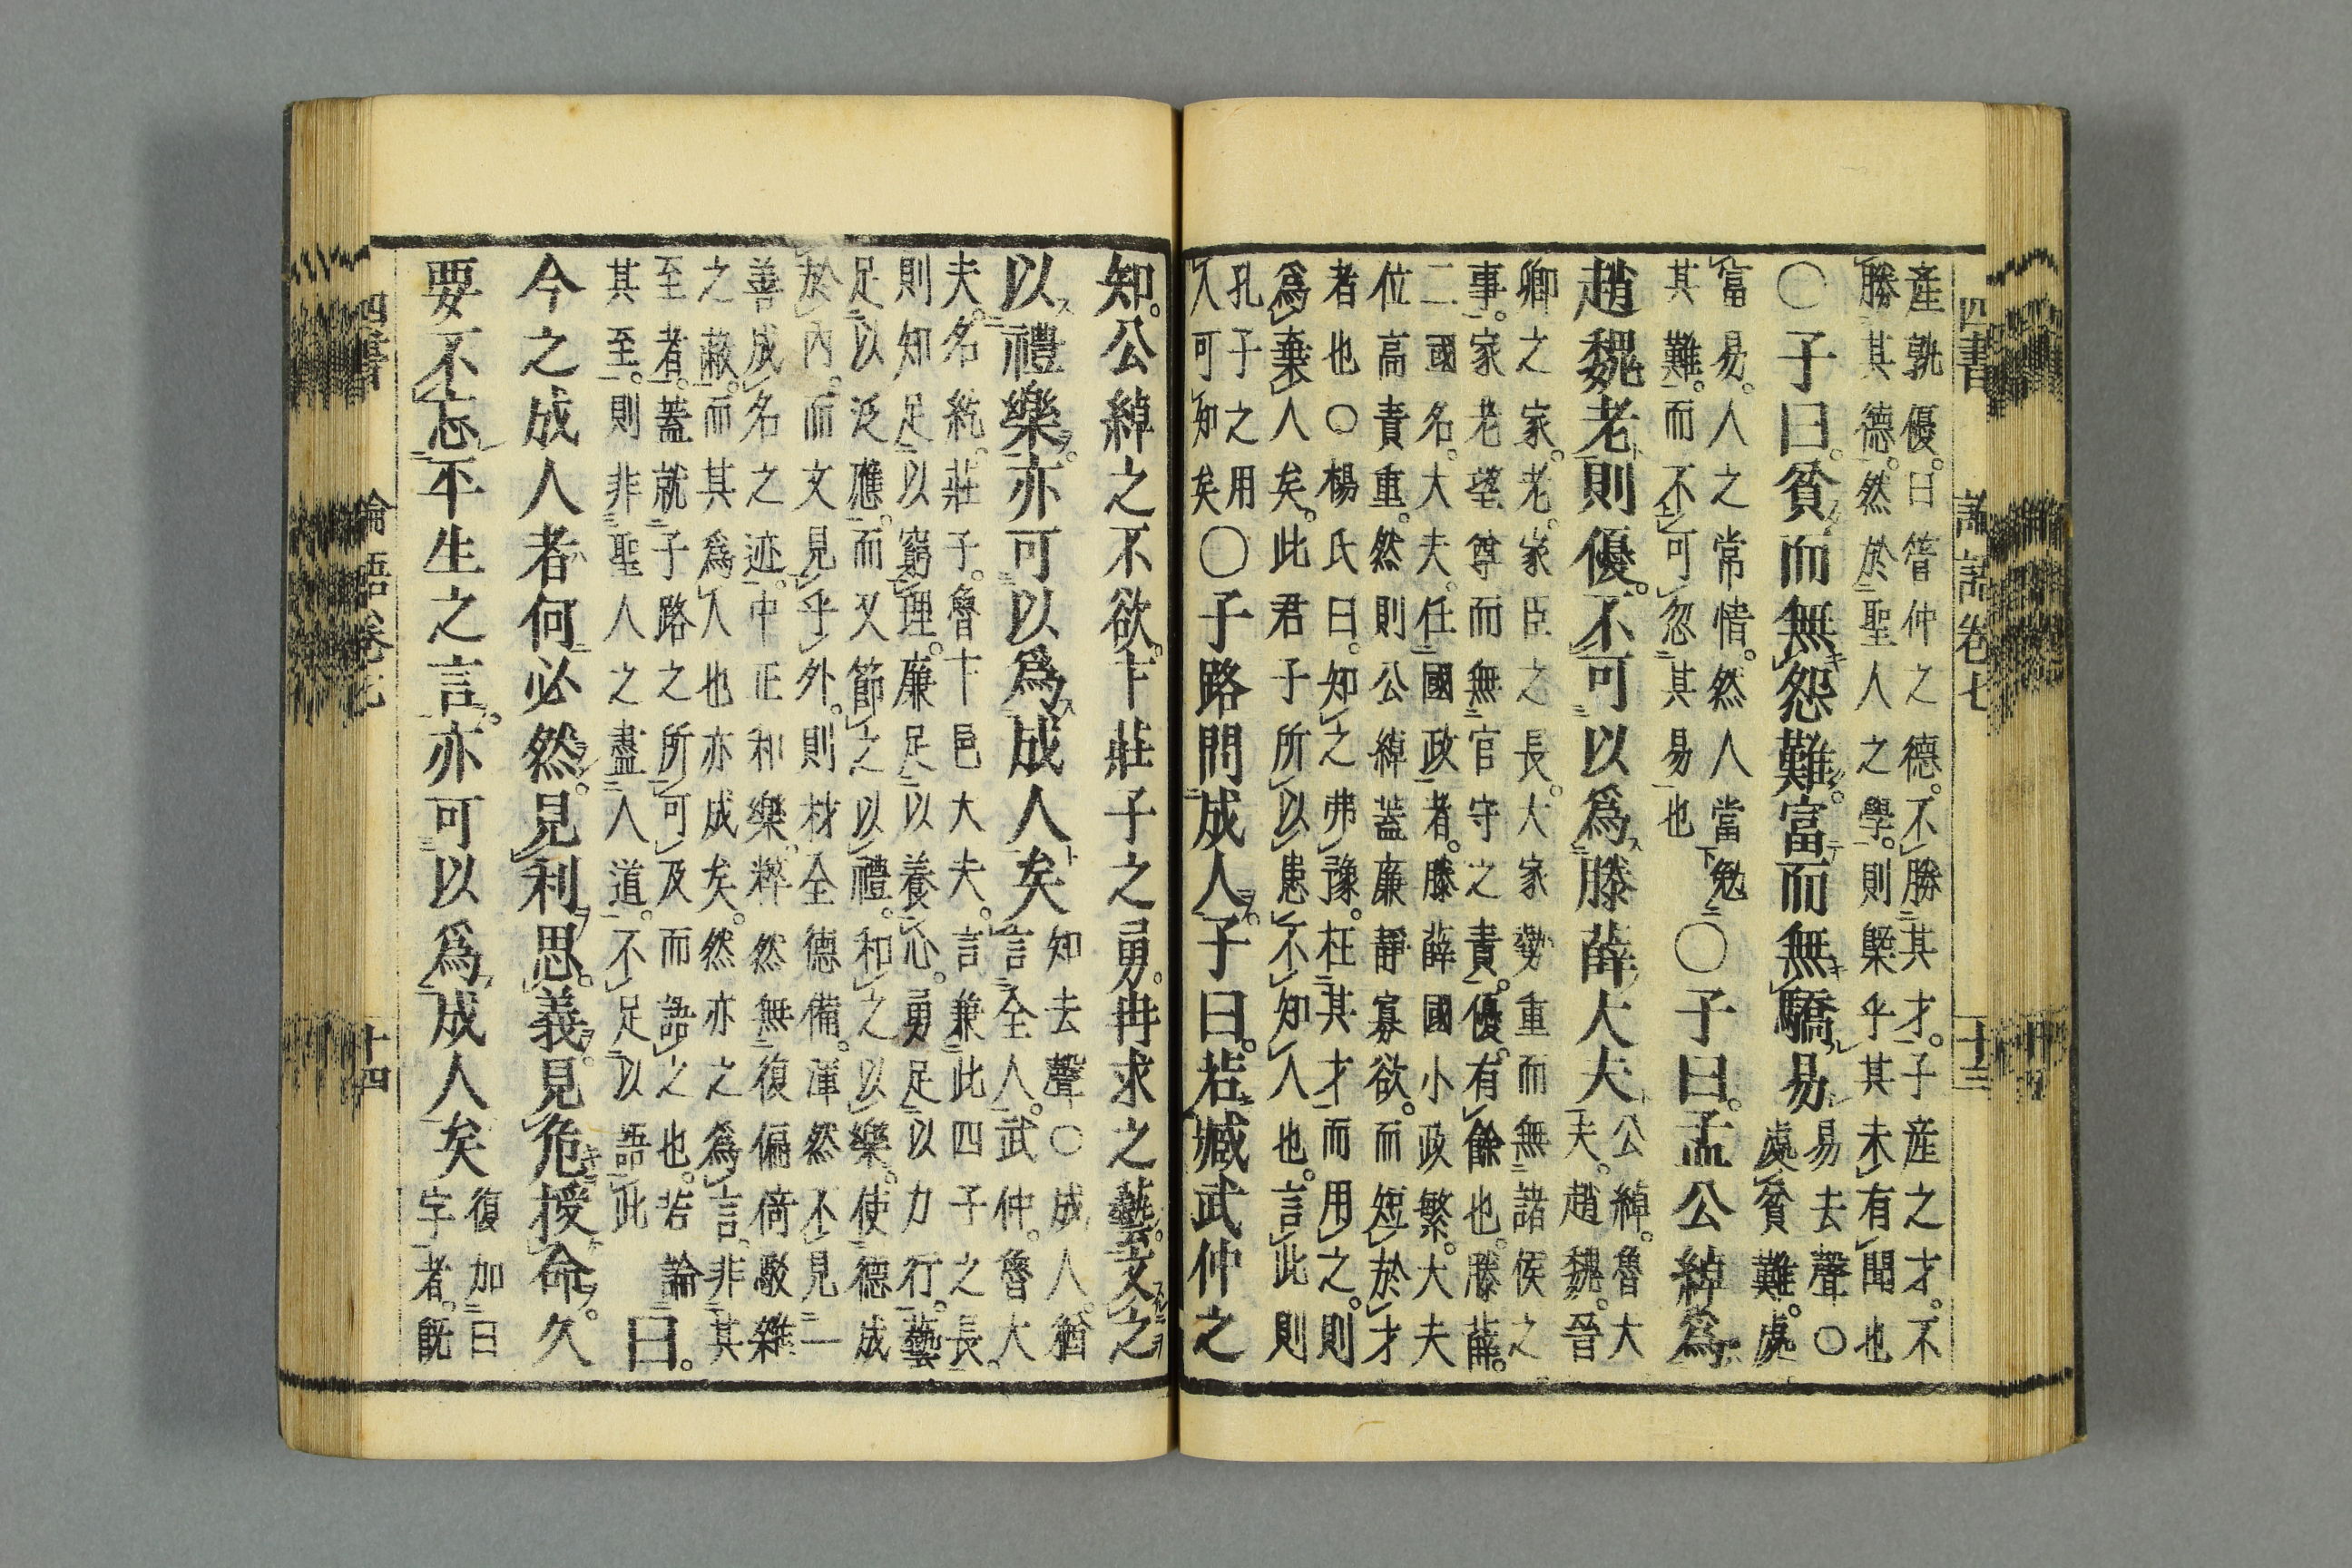 四書
論語卷七
十三
產孰優曰管仲之德不勝其才子產之才不
勝其德然於聖人之學則槩乎其未有聞也
〇子曰貧而無怨難富而無驕易
易去聲〇
處貧難處
富易人之常情然人當勉
其難而不可忽其易也
〇子曰孟公綽爲
趙魏老則優不可以爲滕薛大夫
公綽魯大
夫趙魏晉
卿之家老家臣之長大家勢重而無諸侯之
事家老望尊而無官守之責優有餘也滕薛
二國名大夫任國政者滕薛國小政繁大夫
位高責重然則公綽蓋廉靜寡欲而短於才
者也〇楊氏曰知之弗豫枉其才而用之則
爲棄人矣此君子所以患不知人也言此則
孔子之用
人可知矣
〇子路問成人子曰若臧武仲之
知公綽之不欲卞莊子之勇冉求之藝文之
以禮樂亦可以爲成人矣
知去聲〇成人猶
言全人武仲魯大
夫名紇莊子魯卞邑大夫言兼此四子之長
則知足以窮理廉足以養心勇足以力行藝
足以泛應而又節之以禮和之以樂使德成
於內而文見乎外則材全德備渾然不見一
善成名之迹中正和樂粹然無復偏倚駁雜
之蔽而其爲人也亦成矣然亦之爲言非其
至者蓋就子路之所可及而語之也若論
其至則非聖人之盡人道不足以語此
曰
今之成人者何必然見利思義見危授命久
要不忘平生之言亦可以爲成人矣
復加曰
字者旣
四書
論語卷七
十四